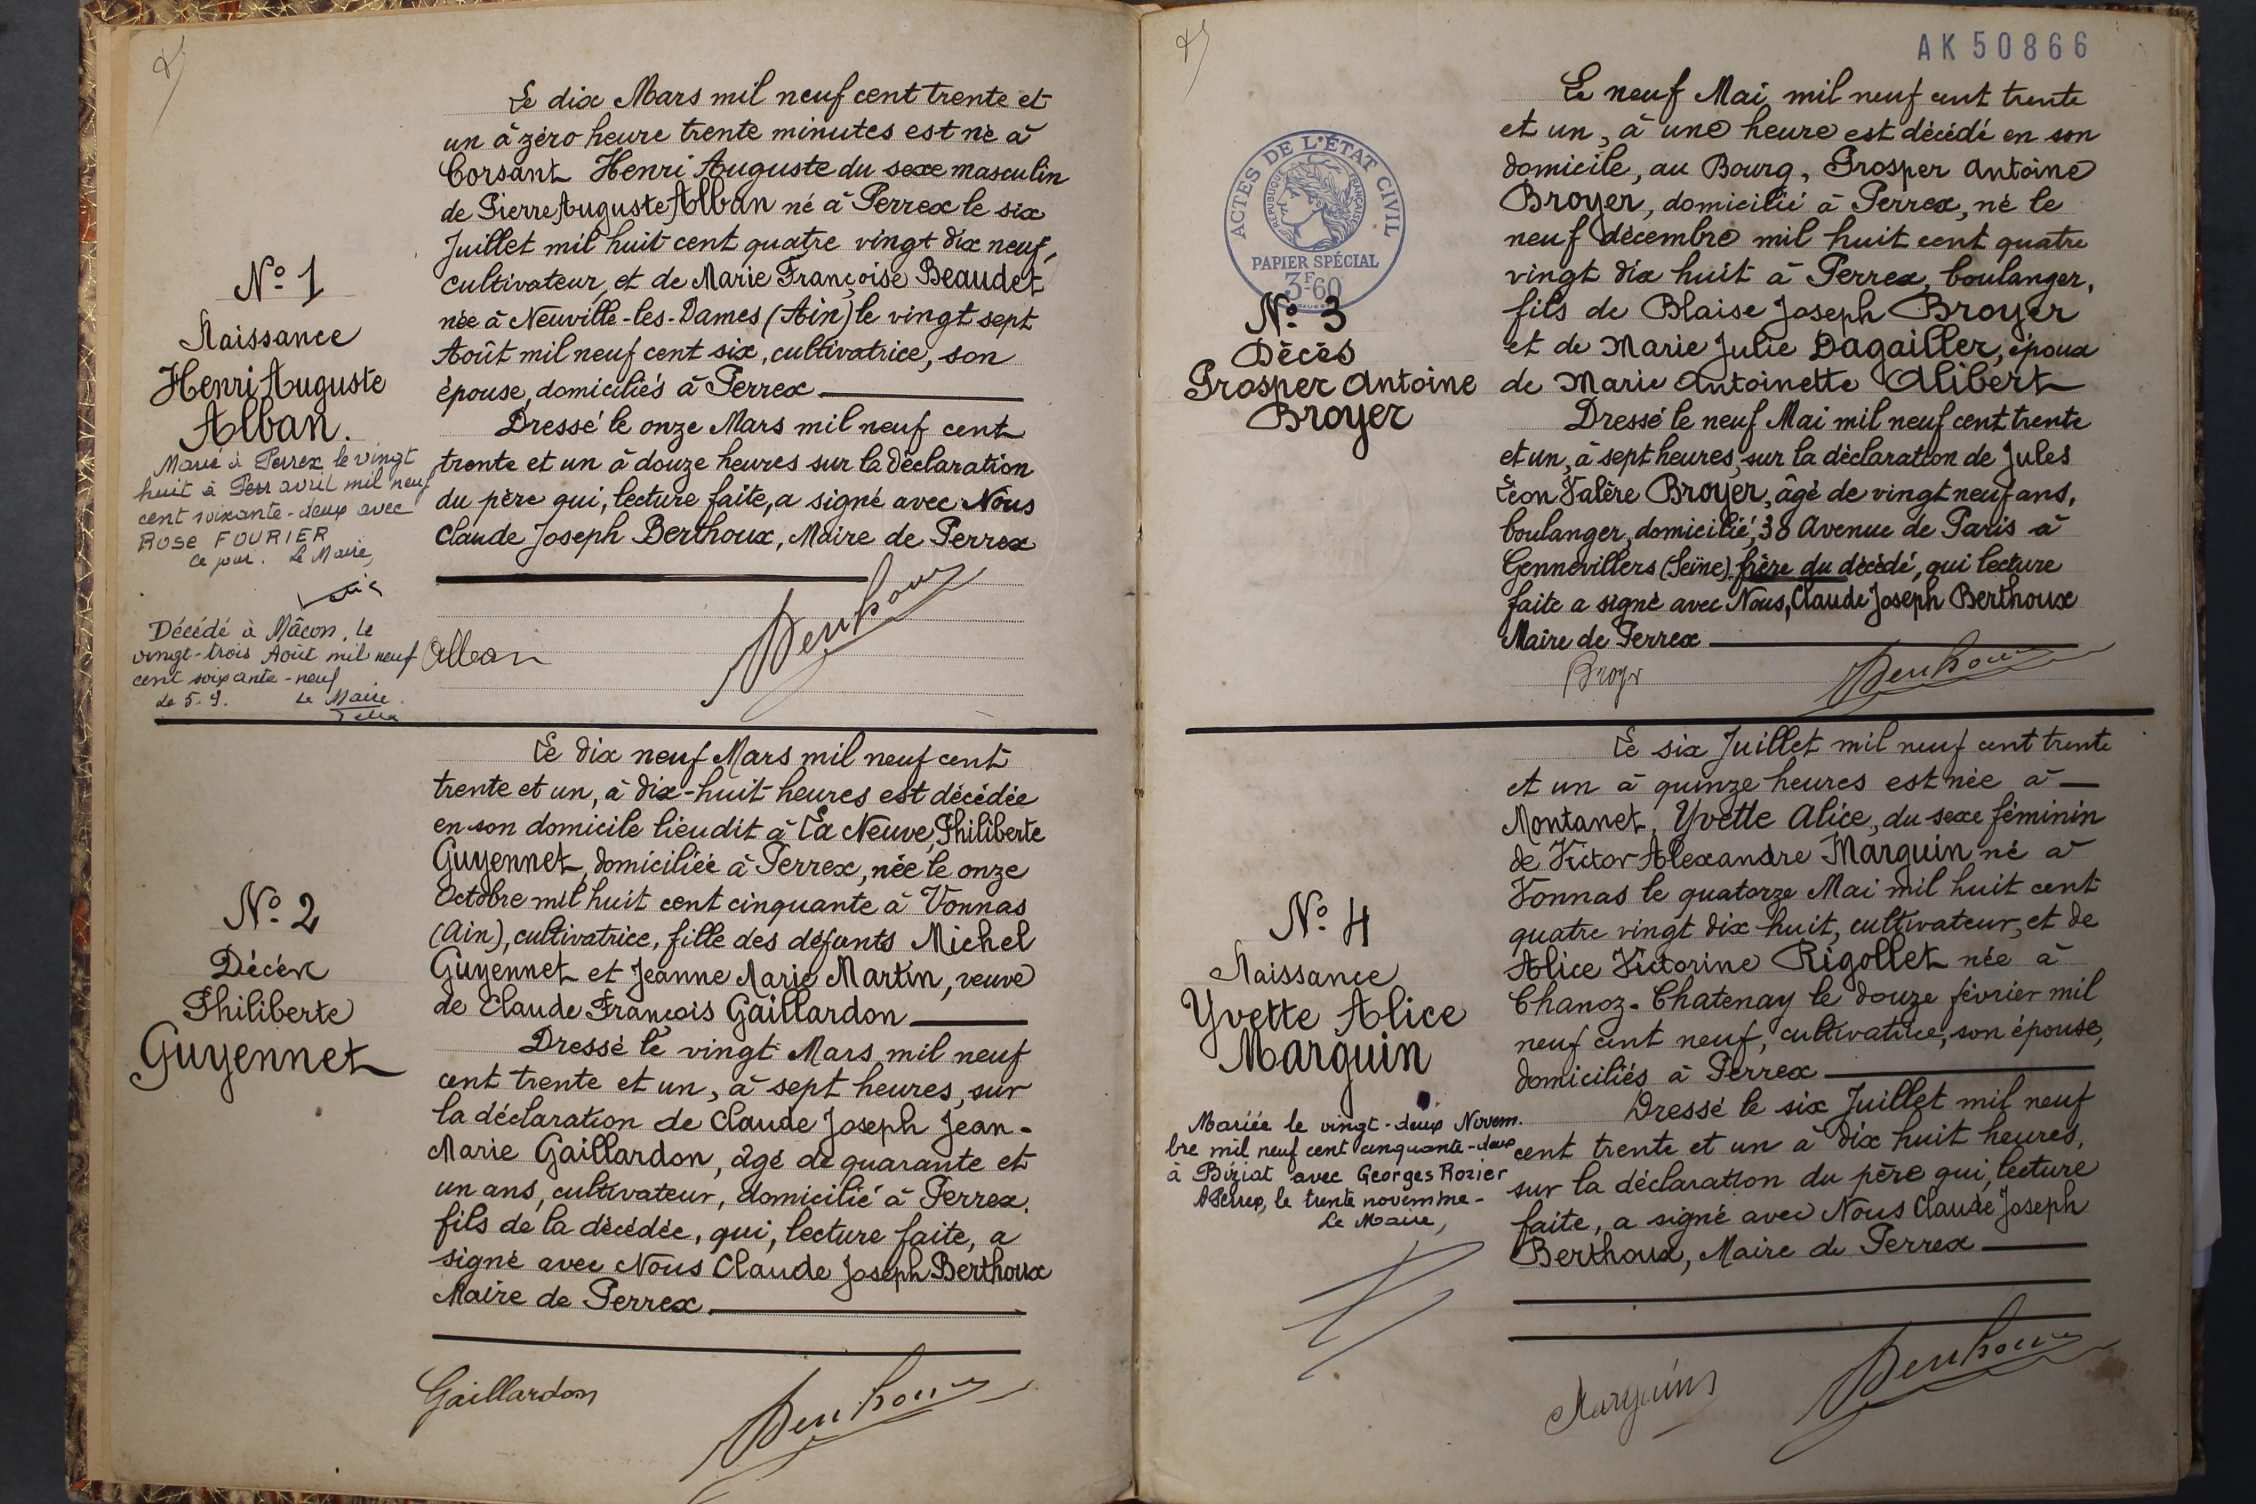 N° 1
Naissance
Henri Auguste
Alban.
Marié à Perrex le vingt
huit à Perr avril mil neuf
cent soixante-deux avec
Rose FOURIER
Ce jour. Le Maire,
Décédé à Mâcon, le
vingt-trois Août mil neuf
cent soixante-neuf
Le 5.9. Le Maire
Le dix Mars mil neuf cent trente et
un à zéro heure trente minutes est né à
Corsant Henri Auguste du sexe masculin
de Pierre Auguste Alban né à Perrex le six
Juillet mil huit cent quatre vingt dix neuf,
cultivateur, et de Marie Françoise Beaudet
née à Neuville-les-Dames (Ain) le vingt sept
Août mil neuf cent six, cultivatrice, son
épouse, domiciliés à Perrex
Dressé le onze Mars mil neuf cent
trente et un à douze heures sur la déclaration
du père qui, lecture faite, a signé avec Nous
Claude Joseph Berthoux, Maire de Perrex
Alban
Berthoux
N° 2
Décès
Philiberte
Guyennet
Le dix neuf Mars mil neuf cent
trente et un, à dix-huit heures est décédée
en son domicile lieudit à La Neuve, Philiberte
Guyennet, domiciliée à Perrex, née le onze
Octobre mil huit cent cinquante à Vonnas
(Ain), cultivatrice, fille des défunts Michel
Guyennet et Jeanne Marie Martin, veuve
de Claude François Gaillardon
Dressé le vingt Mars mil neuf
cent trente et un, à sept heures, sur
la déclaration de Claude Joseph Jean-
Marie Gaillardon, âgé de quarante et
un ans, cultivateur, domicilié à Perrex,
fils de la décédée, qui, lecture faite, a
signé avec Nous Claude Joseph Berthoux
Maire de Perrex
Gaillardon
Berthoux
AK 50866
ACTES DE L'ÉTAT CIVIL
RÉPUBLIQUE FRANÇAISE
PAPIER SPÉCIAL
3F60
N° 3
Décès
Prosper Antoine
Broyer
Le neuf Mai mil neuf cent trente
et un, à une heure est décédé en son
domicile, au Bourg, Prosper Antoine
Broyer, domicilié à Perrex, né le
neuf décembre mil huit cent quatre
vingt dix huit à Perrex, boulanger,
fils de Blaise Joseph Broyer
et de Marie Julie Dagailler, époux
de Marie Antoinette Alibert
Dressé le neuf Mai mil neuf cent trente
et un, à sept heures, sur la déclaration de Jules
Léon Valère Broyer, âgé de vingt neuf ans,
boulanger, domicilié, 38 Avenue de Paris à
Gennevillers (Seine) frère du décédé, qui lecture
faite a signé avec Nous, Claude Joseph Berthoux
Maire de Perrex
Broyer
Berthoux
N° 4
Naissance
Yvette Alice
Marguin
Mariée le vingt-deux Novem-
bre mil neuf cent cinquante-deux
à Biziat avec Georges Rozier
A Perrex, le trente novembre-
Le Maire,
Le six Juillet mil neuf cent trente
et un à quinze heures est née à
Montanet, Yvette Alice, du sexe féminin
de Victor Alexandre Marguin né à
Vonnas le quatorze Mai mil huit cent
quatre vingt dix-huit, cultivateur, et de
Alice Victorine Rigollet née à
Chanoz-Chatenay le douze février mil
neuf cent neuf, cultivatrice, son épouse,
domiciliés à Perrex
Dressé le six Juillet mil neuf
cent trente et un à dix huit heures,
sur la déclaration du père qui, lecture
faite, a signé avec Nous Claude Joseph
Berthoux, Maire de Perrex
Marguin
Berthoux